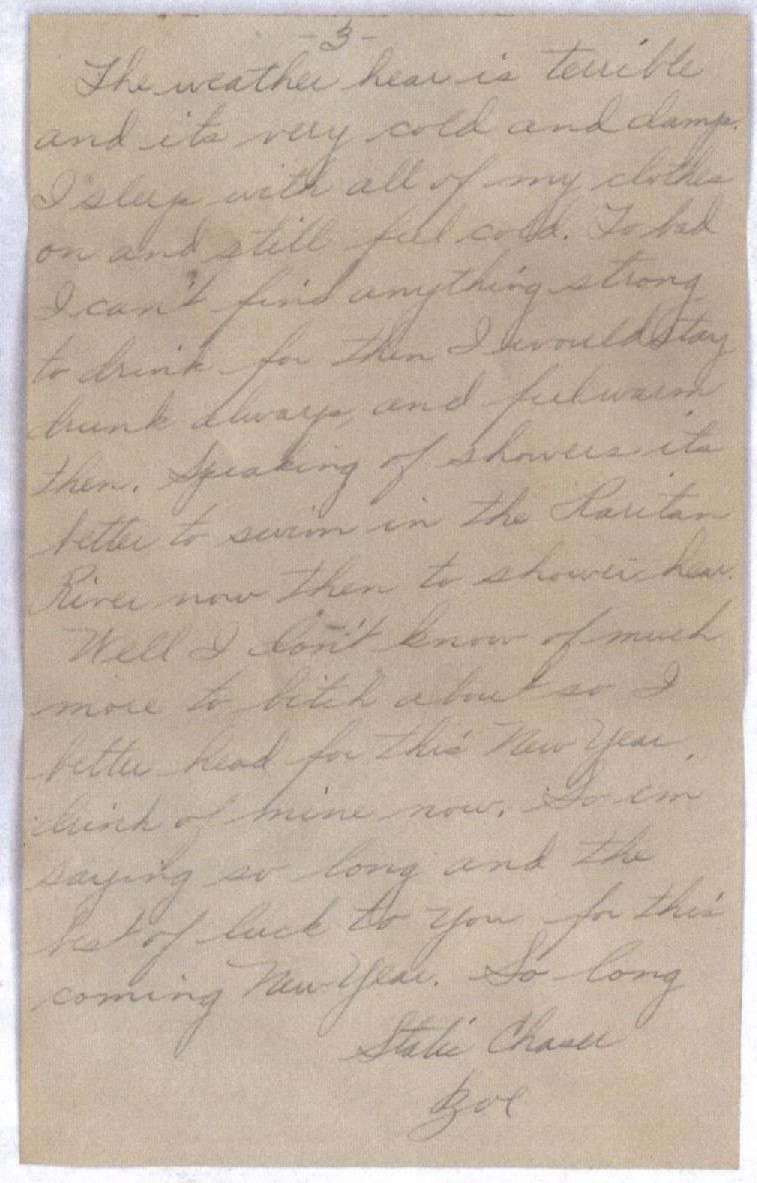 -3-
The weather hear is terrible
and its very cold and damp.
I sleep with all of my clothes
on and still feel cold. To bad
I can't find anything strong
to drink for then I would stay
drunk always, and feel warm
then. Speaking of showers its
better to swim in the Raritan
River now then to shower hear.
Well I don't know of much
more to bitch about so I
better head for this New Year
drink of mine now. So im
saying so long and the
best of luck to you for this
coming New Year. So long
Static Chaser